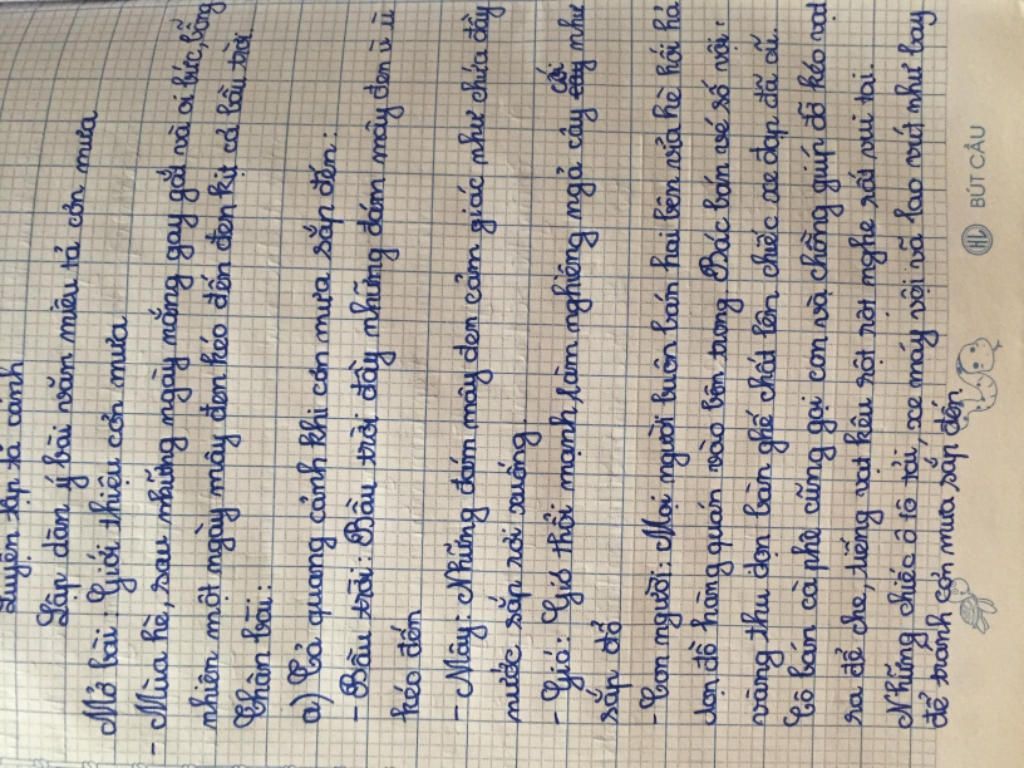 Luyện tập tả cảnh
Lập dàn ý bài văn miêu tả cơn mưa
Mở bài: Giới thiệu cơn mưa
- Mùa hè, sau những ngày nắng gay gắt và oi bức, bỗng
nhiên một ngày mây đen kéo đến đen kịt cả bầu trời
Thân bài:
a) Cả quang cảnh khi cơn mưa sắp đến:
- Bầu trời: Bầu trời đầy những đám mây đen ù ù
kéo đến
- Mây: Những đám mây đen cảm giác như chứa đầy
nước sắp rơi xuống
- Gió: Gió thổi mạnh, làm nghiêng ngả cây cối như
sắp đổ
- Con người: Mọi người buôn bán hai bên vỉa hè hối hả
dọn đồ hàng quán vào bên trong. Bác bán vé số vội
vàng thu dọn bàn ghế chất lên chiếc xe đạp đã cũ.
Cô bán cà phê cũng gọi con và chồng giúp đỡ kéo vạt
ra để che, tiếng vạt kêu rột rột nghe rất vui tai.
Những chiếc ô tô tải, xe máy vội vã lao vút như bay
để tránh cơn mưa sắp đến.
HL BÚT CẦU